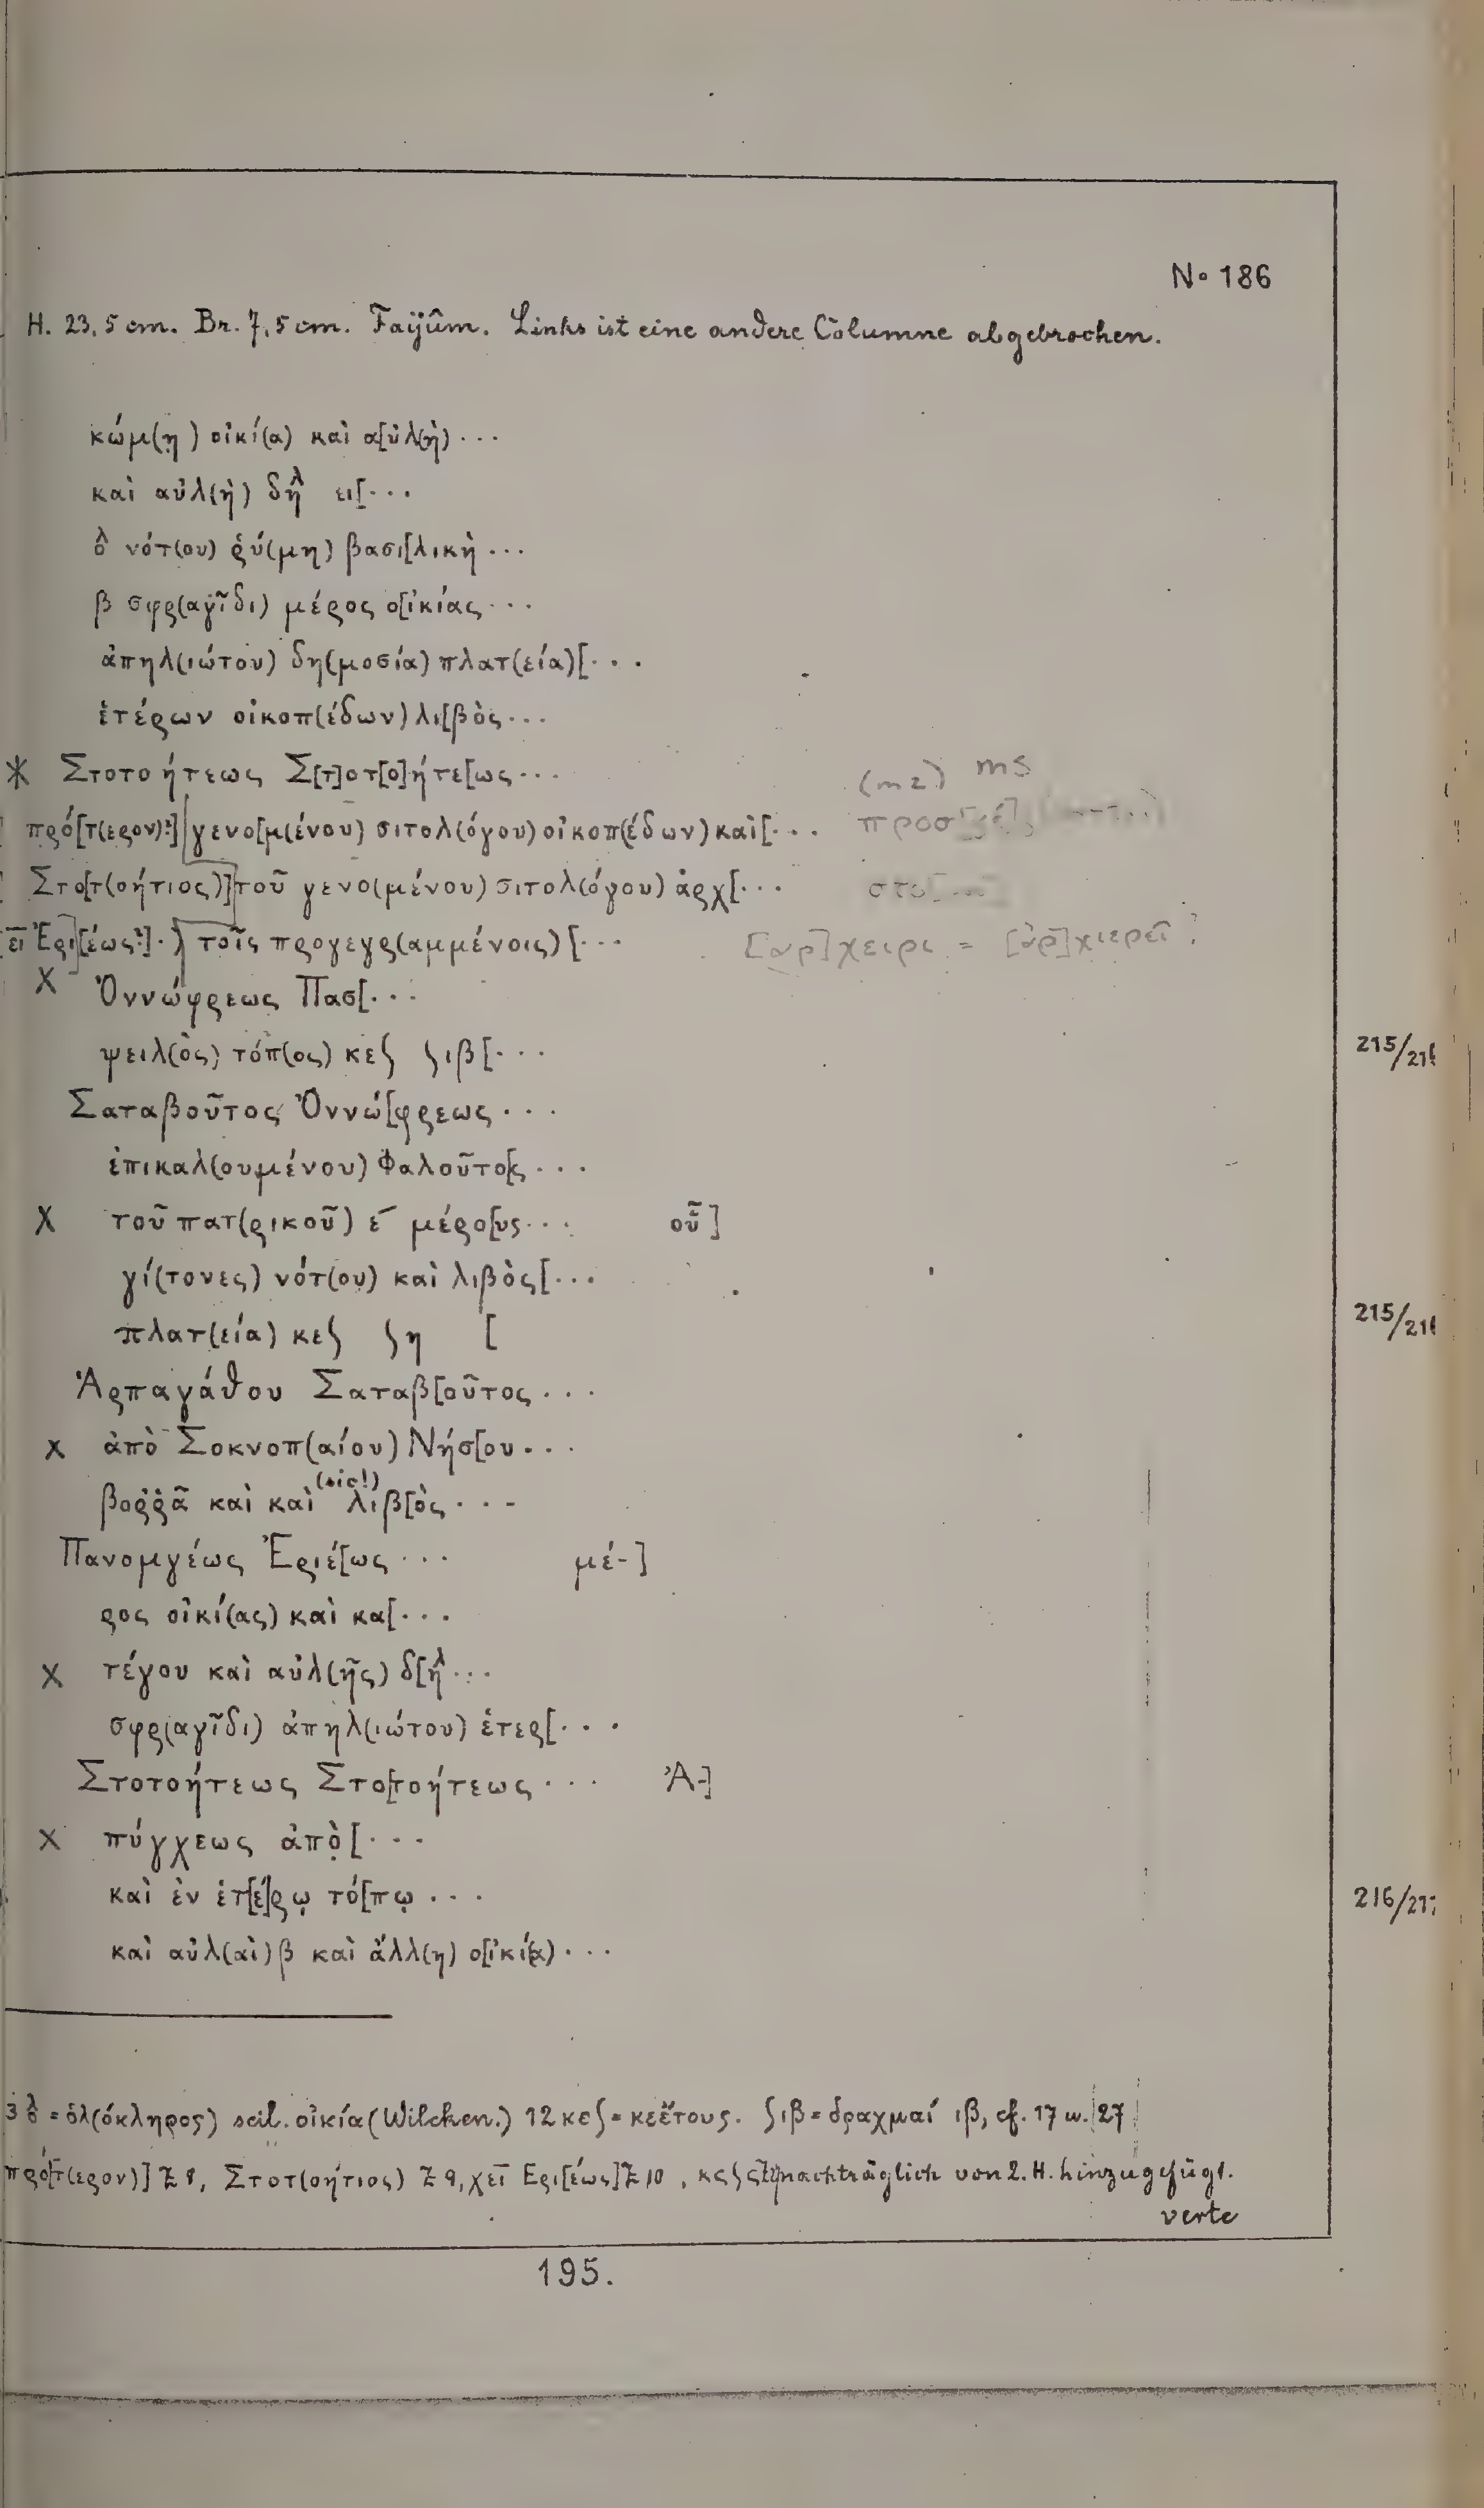 No 186
H. 23,5 cm. Br. 7,5 cm. Faijûm. Links ist eine andere Columne abgebrochen.
κώμ(η) οἰκί(α) καὶ α[ὐλ(ὴ) ...
καὶ αὐλ(ὴ) δηλ ει[...
ὁλ νότ(ου) ῥύ(μη) βασι[λικὴ ...
β σφρ(αγῖδι) μέρος ο[ἰκίας ...
ἀπηλ(ιώτου) δη(μοσία) πλατ(εία)[...
ἑτέρων οἰκοπ(έδων) λι[βὸς ...
Στοτοήτεως Σ[τ]οτ[ο]ήτε[ως ... (m2) ms
πρό[τ(ερον)?] γενο[μ(ένου) σιτολ(όγου) οἰκοπ(έδων) καὶ[... προσ
Στο[τ(οήτιος)] τοῦ γενο(μένου) σιτολ(όγου) ἀρχ[... στο[
εῖ Ἑρι[έως?]. τοῖς προγεγρ(αμμένοις) [... [αρ]χειρι = [ἀρ]χιερεῖ ?
X Ὀννώφρεως Πασ[...
ψειλ(ὸς) τόπ(ος) κεʃ ʃιβ[... 215/21
Σαταβοῦτος Ὀννώ[φρεως ...
ἐπικαλ(ουμένου) Φαλοῦτο[ς ...
X τοῦ πατ(ρικοῦ) ε μέρο[υς ... οὗ]
γί(τονες) νότ(ου) καὶ λιβὸς[...
πλατ(εία) κεʃ ʃη [ 215/21
Ἁρπαγάθου Σαταβ[οῦτος ...
X ἀπὸ Σοκνοπ(αίου) Νήσ[ου ...
βοῤῥᾶ καὶ καὶ (sic!) λιβ[ὸς ...
Πανομγέως Ἑριέ[ως ... μέ-]
ρος οἰκί(ας) καὶ κα[...
X τέγου καὶ αὐλ(ῆς) δ[ηλ ...
σφρ(αγῖδι) ἀπηλ(ιώτου) ἑτερ[...
Στοτοήτεως Στο[τοήτεως ... Ἀ-]
X πύγχεως ἀπὸ [...
καὶ ἐν ἑτ[έ]ρῳ τό[πῳ ... 216/217
καὶ αὐλ(αὶ) β καὶ ἄλλ(η) ο[ἰκί(α) ...
3 ὁλ = ὁλ(όκληρος) scil. οἰκία (Wilcken.) 12 κεʃ = κε ἔτους. ʃιβ = δραχμαί ιβ, cf. 17 u. 27
πρό[τ(ερον)] Z 8, Στοτ(οήτιος) Z 9, χεῖ Ερι[έως] Z 10, nachträglich von 2. H. hinzugefügt.
verte
195.